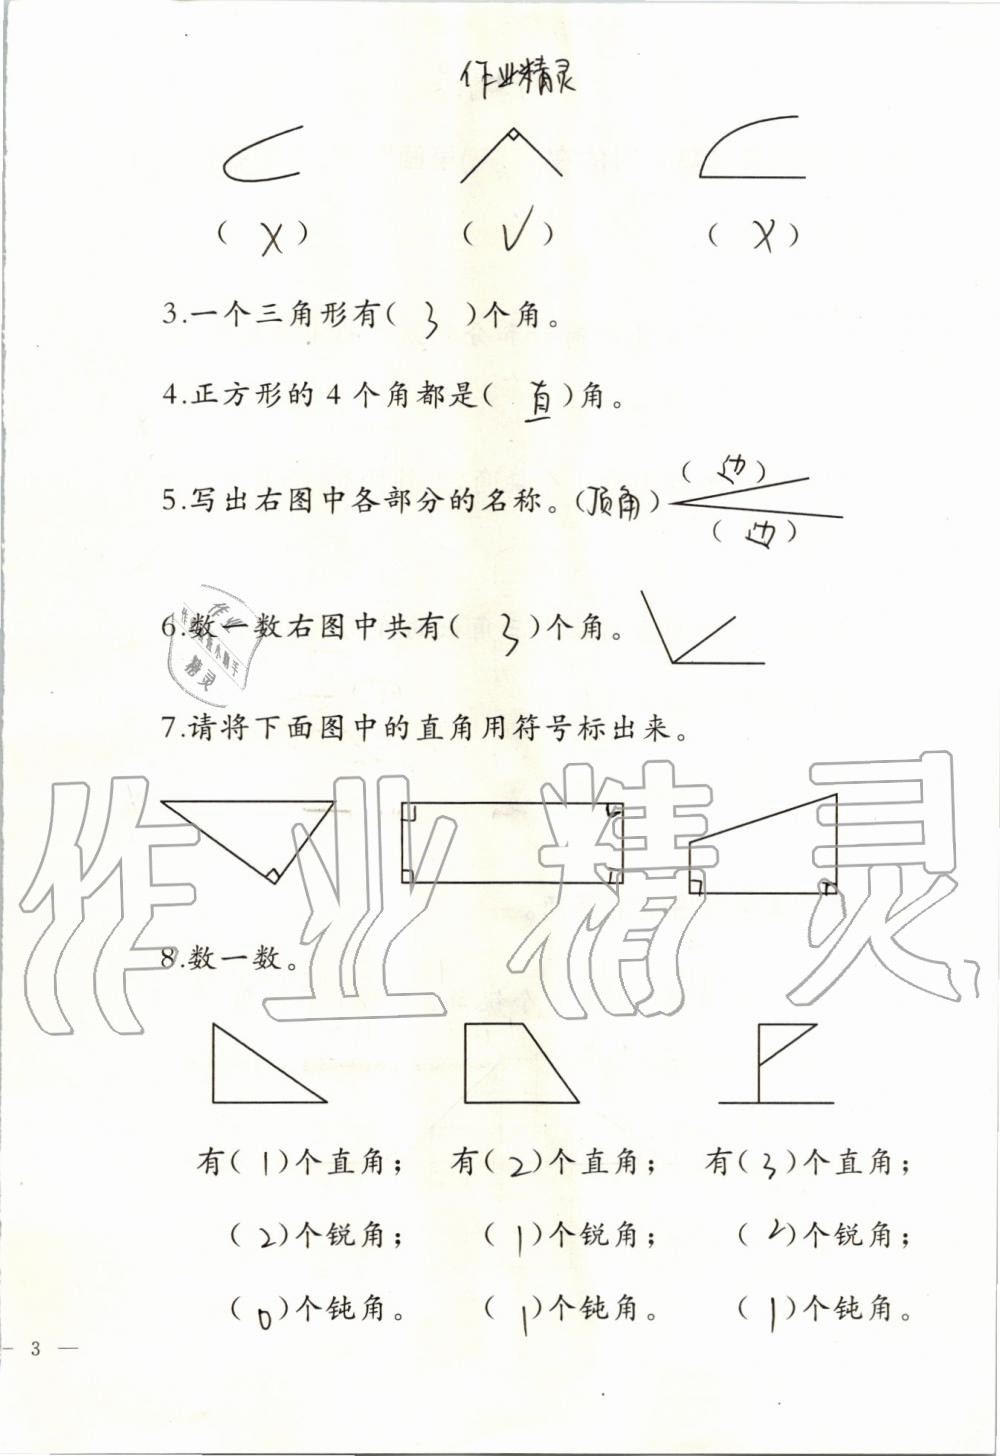 作业精灵
( X ) ( √ ) ( X )
3.一个三角形有( 3 )个角。
4.正方形的 4 个角都是( 直 )角。
( 边 )
5.写出右图中各部分的名称。(顶角)
( 边 )
作业
作业检查小助手
精灵
6.数一数右图中共有( 3 )个角。
7.请将下面图中的直角用符号标出来。
作业精灵
8.数一数。
有( 1 )个直角; 有( 2 )个直角; 有( 3 )个直角;
( 2 )个锐角; ( 1 )个锐角; ( 2 )个锐角;
( 0 )个钝角。 ( 1 )个钝角。 ( 1 )个钝角。
— 3 —